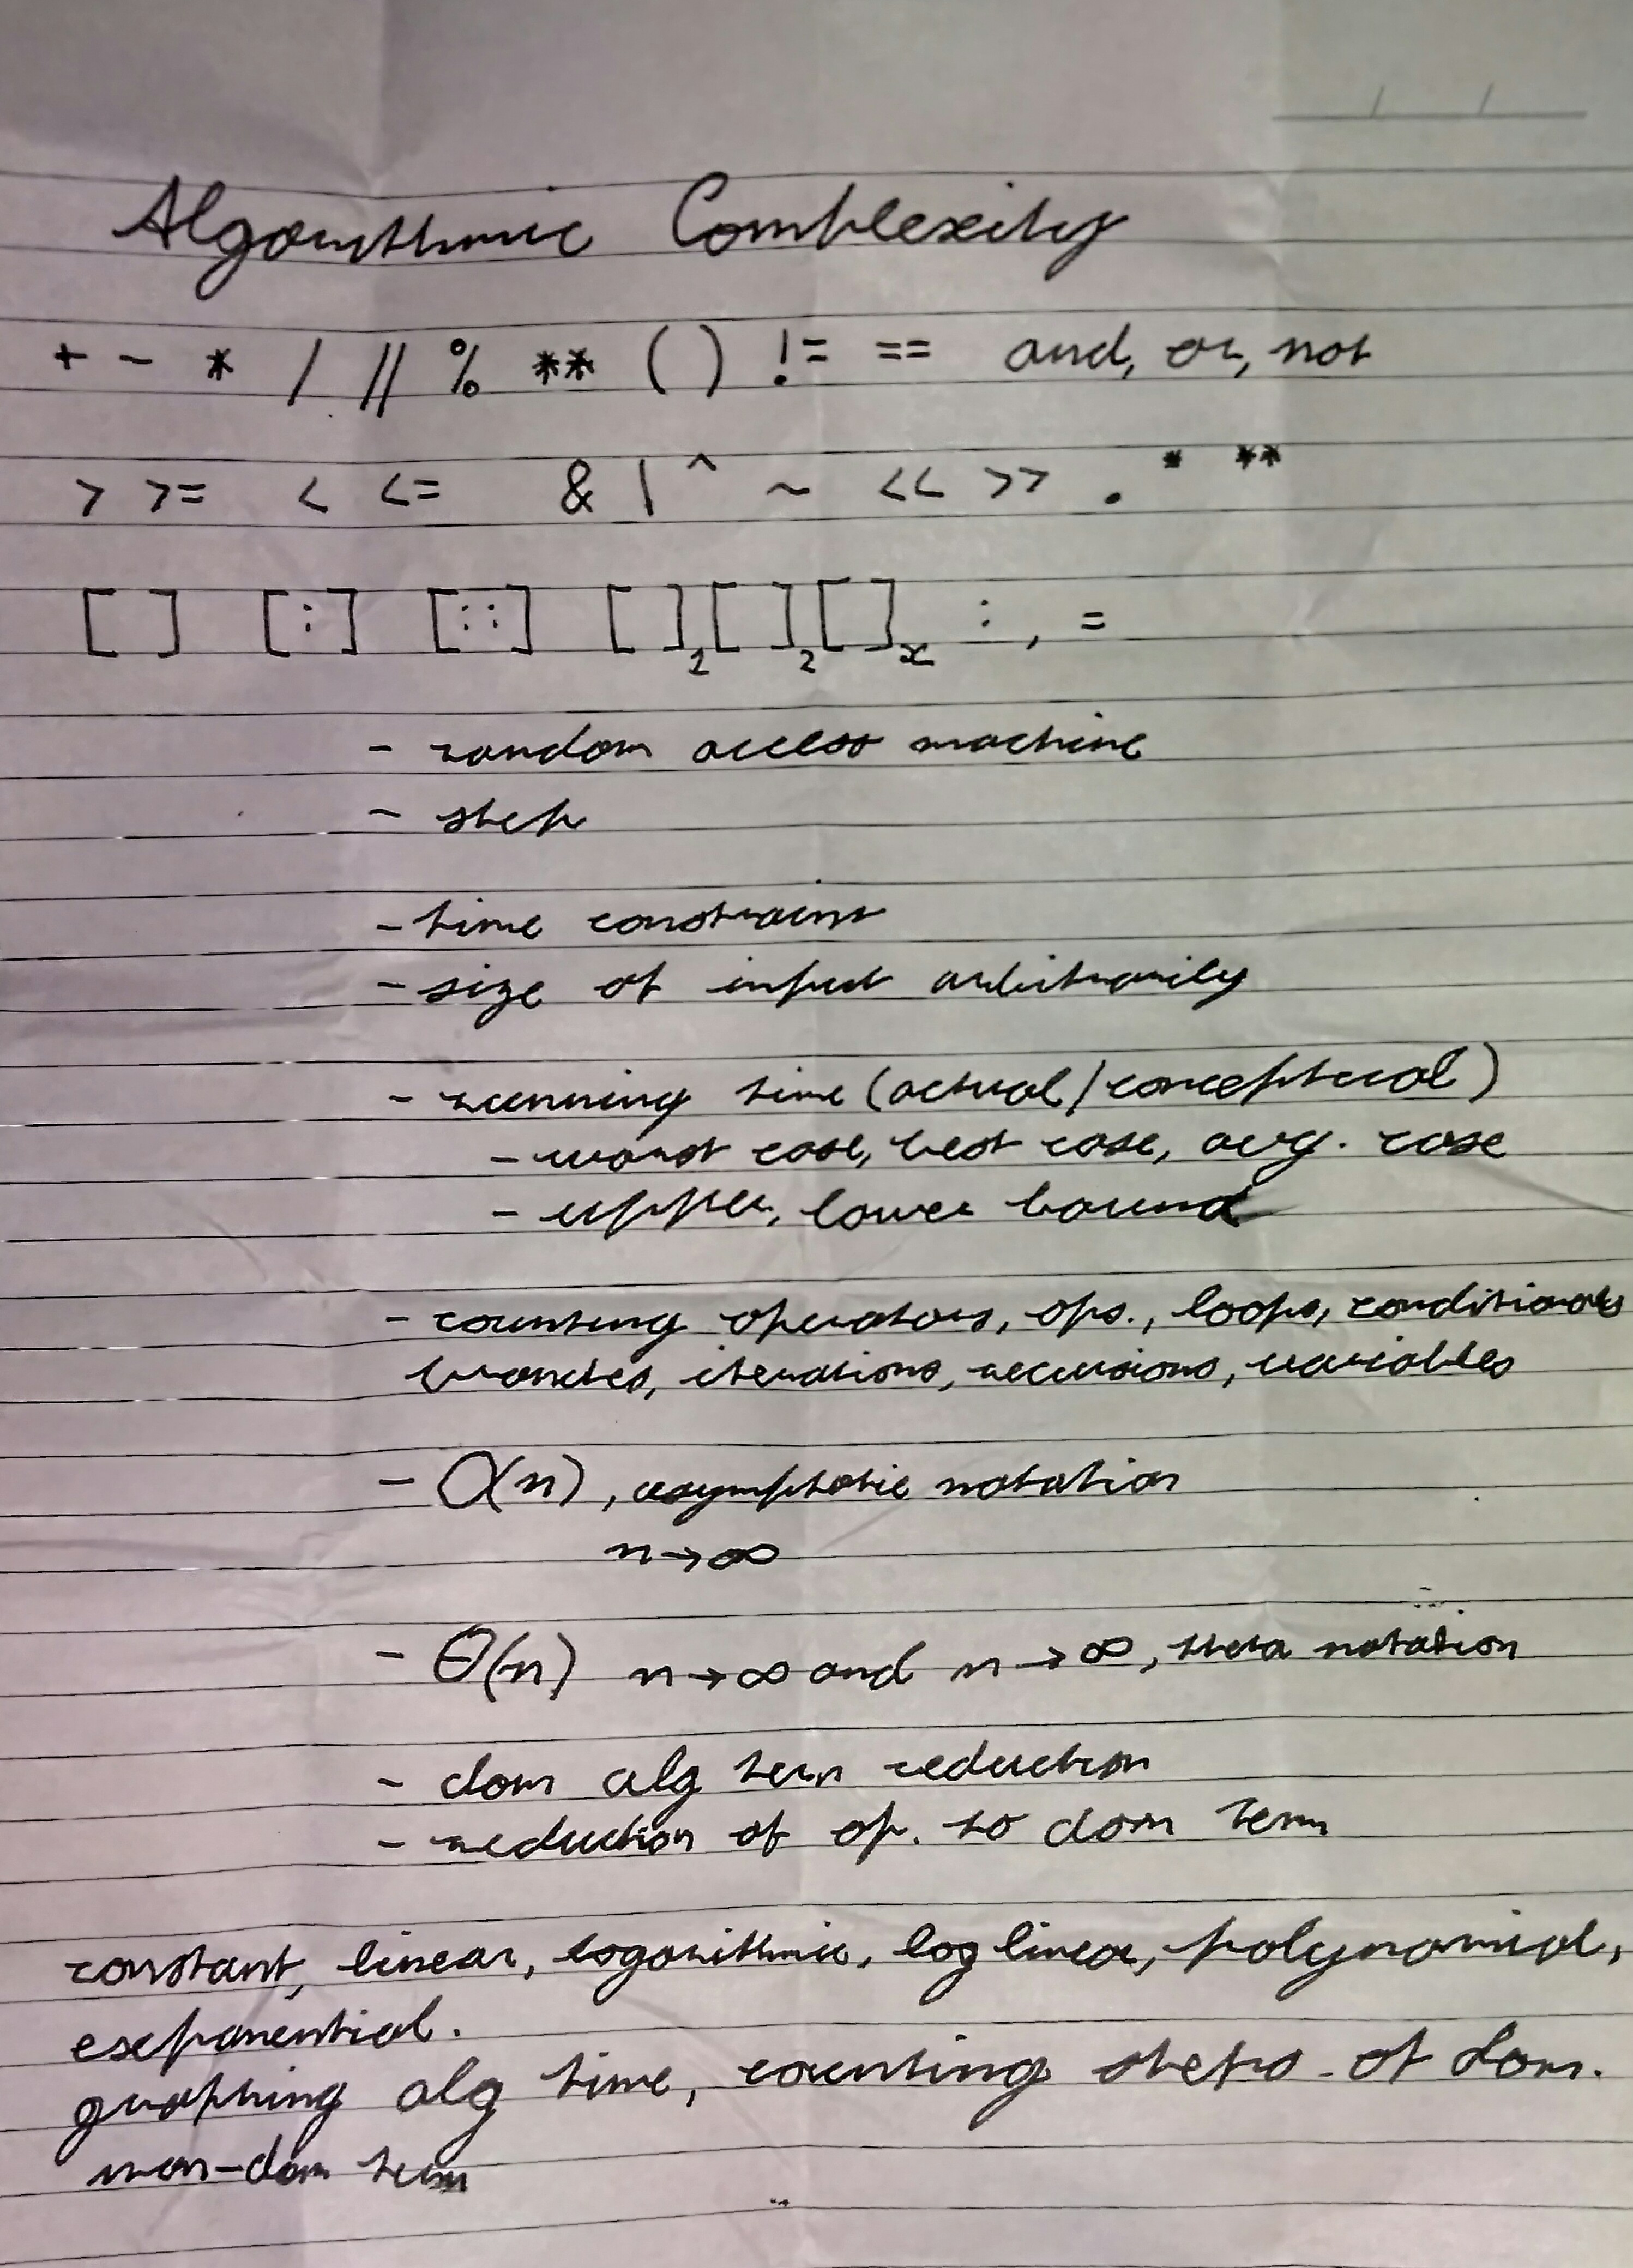 Algorithmic Complexity
+ - * / // % ** ( ) != == and, or, not
> >= < <= & | ^ ~ << >> . * **
[ ] [:] [::] [ ]1[ ]2[ ]x : , =
- random access machine
- step
- time constraint
- size of input arbitrarily
- running time (actual/conceptual)
- worst case, best case, avg. case
- upper, lower bound
- counting operators, ops., loops, conditionals
branches, iterations, recursions, variables
- O(n), asymptotic notation
n→∞
- Θ(n) n→∞ and n→∞, theta notation
- dom alg term reduction
- reduction of op. to dom term
constant, linear, logarithmic, log linear, polynomial,
exponential.
graphing alg time, counting steps - of dom.
non-dom term